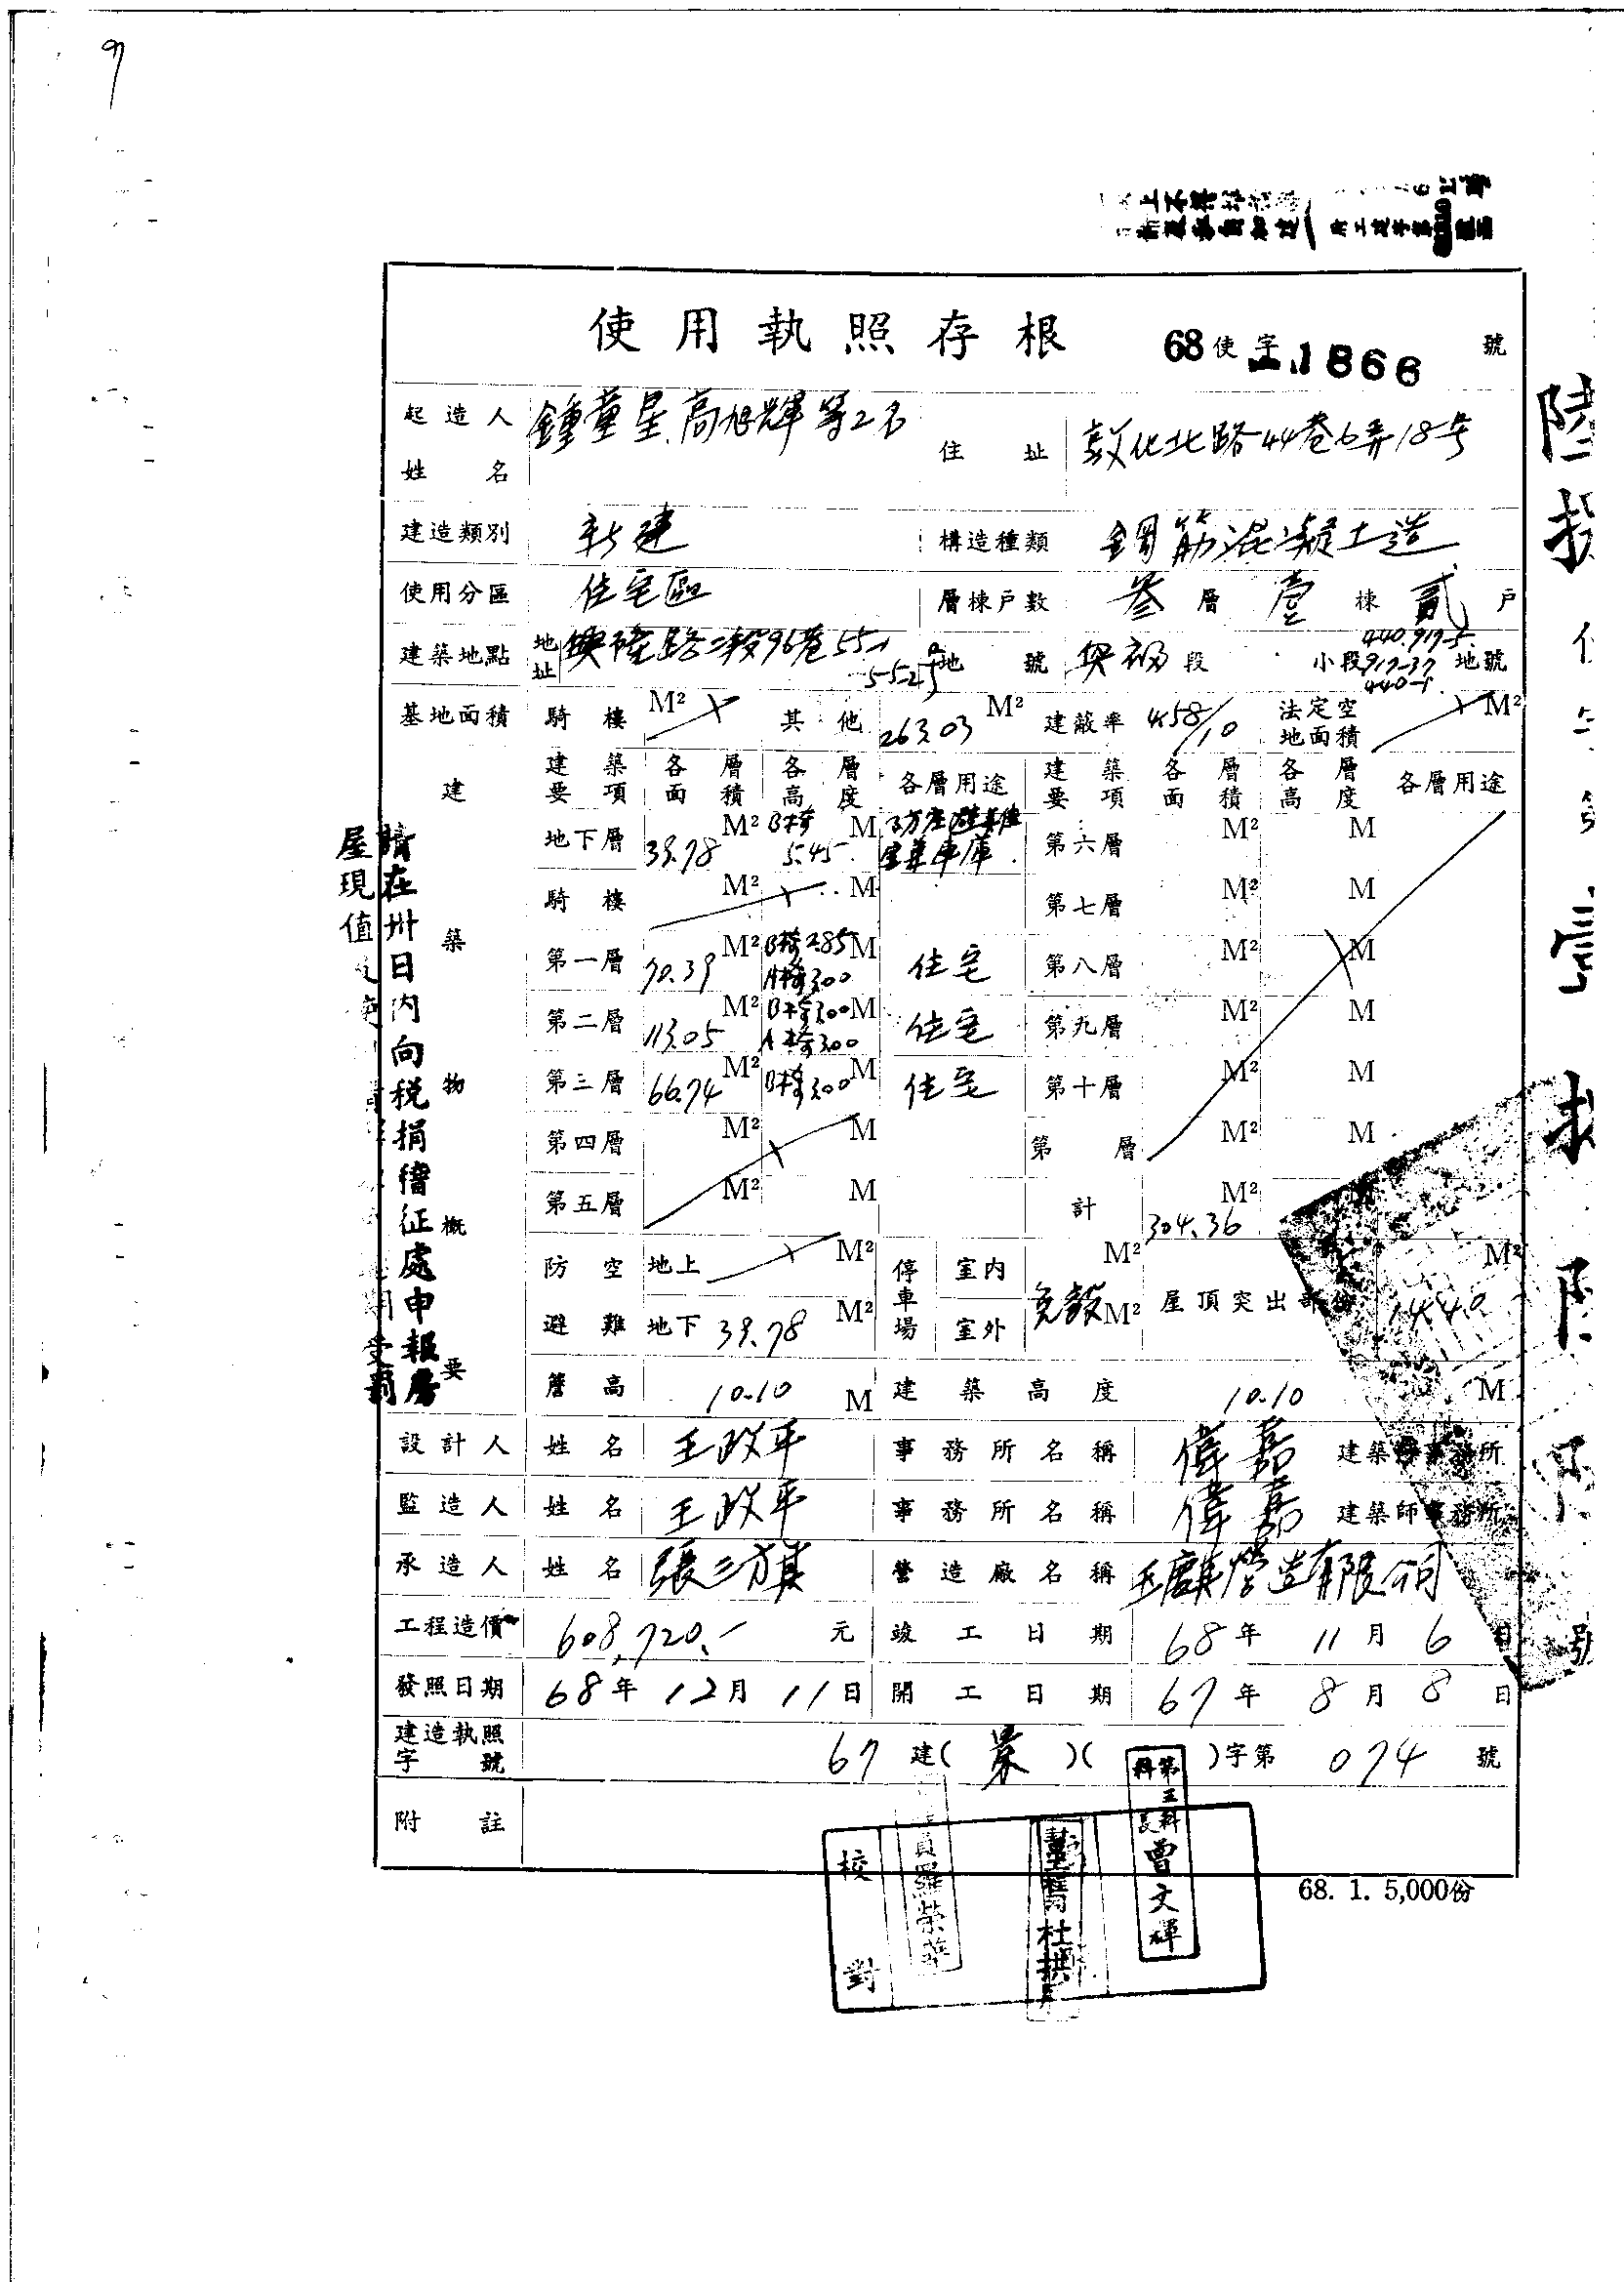 使用執照存根 68使字 1866 號
起造人姓名 鍾童星.高旭輝等2名 住址 敦化北路44巷6弄18号
建造類別 新建 構造種類 鋼筋混凝土造
使用分區 住宅區 層棟戶數 參層壹棟貳戶
建築地點 地址 興隆路二段96巷55-1 55-2号 地號 興福段 小段 440.917-5. 917-37 440-1 地號
基地面積 騎樓 M² 其他 263.03 M² 建蔽率 4.58/10 法定空地面積 M²
建築物概要
建築要項 各層面積 各層高度 各層用途 建築要項 各層面積 各層高度 各層用途
地下層 39.78 M² B棟 5.45 M 防空避難室兼車庫 第六層 M² M
騎樓 M² M 第七層 M² M
第一層 70.39 M² B棟2.85 A棟3.00 M 住宅 第八層 M² M
第二層 113.05 M² B棟3.00 A棟3.00 M 住宅 第九層 M² M
第三層 66.74 M² B棟3.00 M 住宅 第十層 M² M
第四層 M² M 第 層 M² M
第五層 M² M 計 304.36 M²
防空避難 地上 M² 停車場 室內 M² 屋頂突出部份 14.40 M²
地下 39.78 M² 室外 免設 M²
簷高 10.10 M 建築高度 10.10 M
設計人 姓名 王政平 事務所名稱 偉嘉 建築師事務所
監造人 姓名 王政平 事務所名稱 偉嘉 建築師事務所
承造人 姓名 張三旗 營造廠名稱 玉麒營造有限公司
工程造價 608,720.- 元 竣工日期 68年11月6日
發照日期 68年12月11日 開工日期 67年8月8日
建造執照字號 67 建( )( )字第 074 號
附註
請在卅日內向稅捐稽征處申報房
屋現值
校對
第五科科長 曾文輝
68. 1. 5,000份